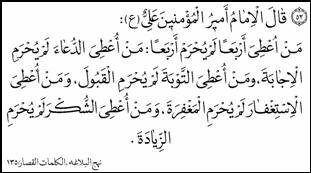 ٥٣ قَالَ الْاِمَامُ اَميرُ الْمُؤْمِنينَ عَلِيٌّ (ع):
مَنْ اُعْطِىَ اَرْبَعًا لَمْ يُحْرَمْ اَرْبَعًا: مَنْ اُعْطِىَ الدُّعَاءَ لَمْ يُحْرَمِ
الْاِجَابَةَ، وَمَنْ اُعْطِىَ التَّوْبَةَ لَمْ يُحْرَمِ الْقَبُولَ، وَمَنْ اُعْطِىَ
الْاِسْتِغْفَارَ لَمْ يُحْرَمِ الْمَغْفِرَةَ، وَمَنْ اُعْطِىَ الشُّكْرَ لَمْ يُحْرَمِ
الزِّيَادَةَ.
نهج البلاغه، الكلمات القصار: ١٣٥